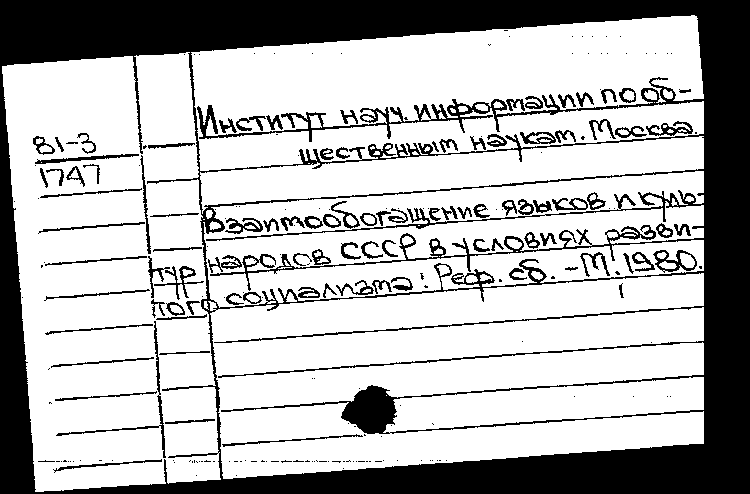 81-3
1747
Институт науч. информации по об-
щественным наукам. Москва.
Взаимообогащение языков и куль-
тур народов СССР в условиях разви-
того социализма: Реф. сб. - М. 1980.